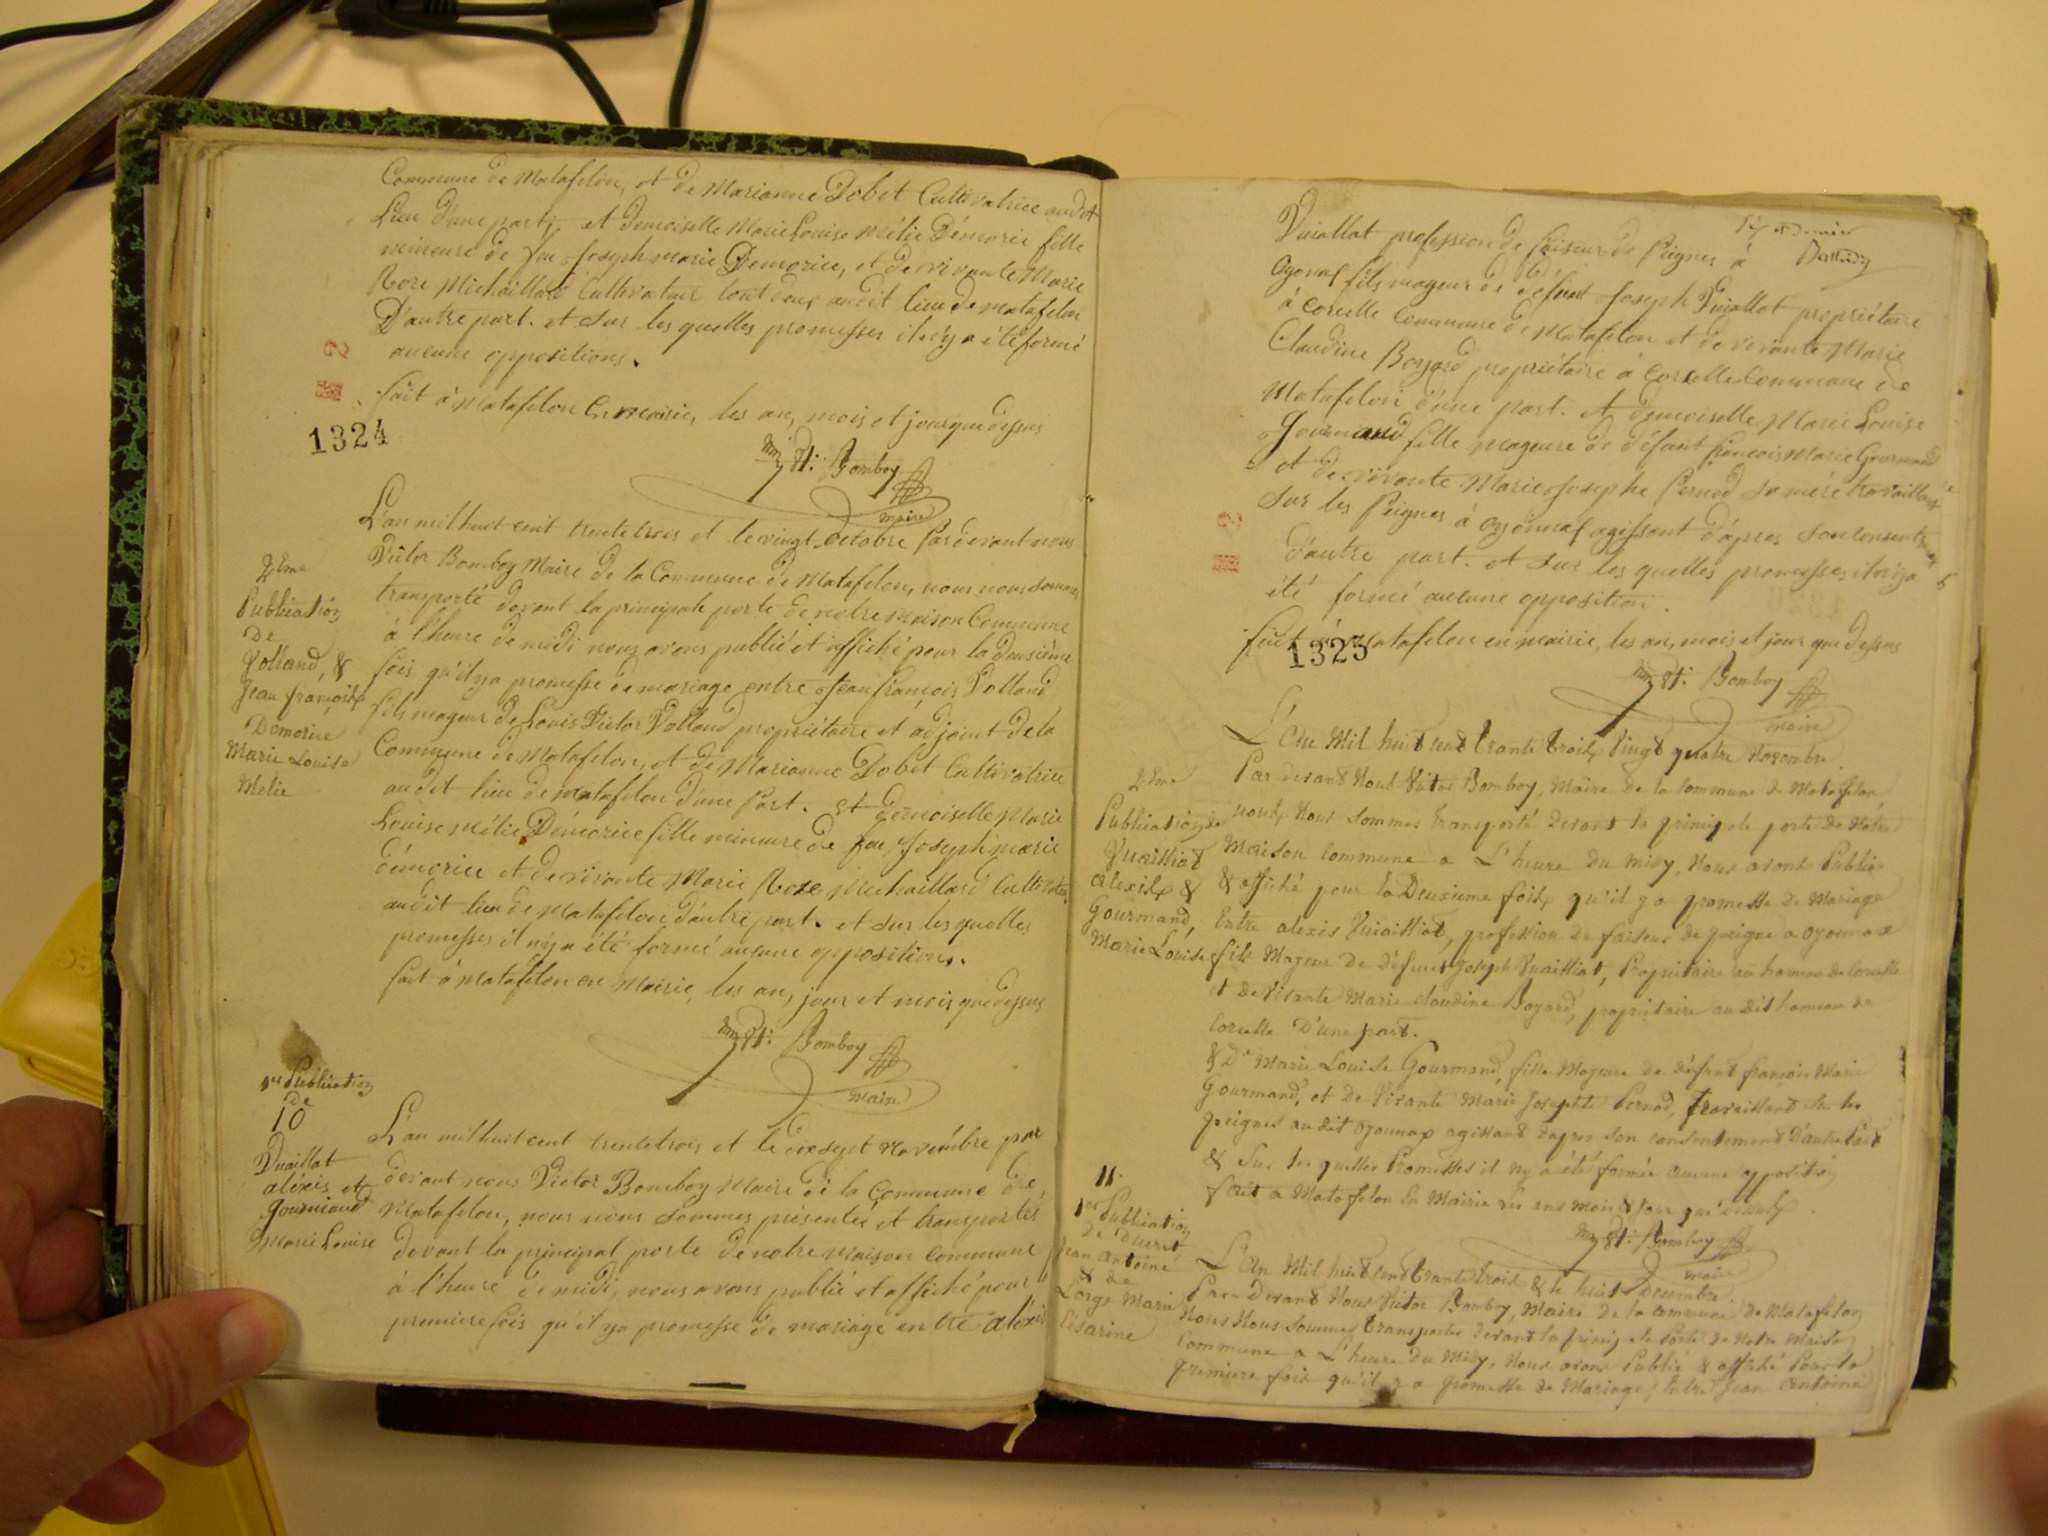 Commune de Matafelon, et de Marianne Dobet Cultivatrice audit
Lieu d'une part, et demoiselle Marie Louise Mélie Démorie fille
mineure de feu Joseph marie Demorice, et de vivante Marie
Roze Michaillard Cultivateur tout deux audit lieu de matafelon
D'autre part. et sur les quelles promesses il n'y a été formé
aucune oppositions.
fait à Matafelon En mairie, les an, mois et jour que dessus
1324
Bomboy
maire
L'an mil huit cent trente trois et le vingt octobre Pardevant nous
Victor Bomboy Maire de la Commune de Matafelon, nous nous sommes
transporté devant la principale porte de notre maison Commune
à l'heure de midi nous avons publié et affiché pour la deusième
fois qu'il y a promesse de mariage entre Jean françois Volland
fils mageur de Louis Victor Volland propriétaire et adjoint de la
Commune de Matafelon, et de Marianne Dobet Cultivatrice
audit lieu de matafelon d'une Part. Et demoiselle Marie
Louise Mélie Démorice fille mineure de feu Joseph marie
démorice et de vivante Marie Roze Michaillard Cultivateur
audit lieu de Matafelon d'autre part. et sur les quelles
promesses il n'y a été formé aucune opposition.
fait à Matafelon en Mairie, les an, jour et mois que dessus
Bomboy
maire
2ème
Publication
de
Volland, &
Jean françois
Demorice
Marie Louise
Melie
1re Publication
de
10
Vuaillat
aléxis et
Gourmand
Marie Louise
L'an mil huit cent trente trois et le dix sept novembre par
devant nous Victor Bomboy Maire de la Commune de
Matafelon, nous nous sommes présenté et transportés
devant la principal porte de notre maison Commune
à l'heure de midi, nous avons publié et affiché pour la
premiere fois qu'il y a promesse de mariage entre aléxis
Vuiallat profession de faiseur de Peignes à
oyonax fils mageur de défunt Joseph Vuiallat propriétaire
à Corcelle Commune de Matafelon et de vivante Marie
Claudine Boyard propriétaire à Corcelle Commune de
Matafelon d'une part. et demoiselle Marie Louise
Gourmand fille mageure de défunt françois Marie Gourmand
et de vivante Marie Josephe Pernod sa mère travaillant
sur les Peignes à oyonnax agissant d'après son consentement
d'autre part. et sur les quelles promesses il n'y a
été formé aucune opposition.
fait à Matafelon en mairie, les an, mois et jour que dessus
1323
Bomboy
maire
L'An Mil huit cent trante trois Vingt quatre Novembre
Par devant Nous Victor Bomboy, Maire de la Commune de Matafelon
nous Nous sommes transporté devant la principale porte de Notre
Maison Commune a L'heure du midy, Nous avons Publié
& affiché pour la Deuxieme fois, qu'il y a promesse de Mariage
Entre alexis Vuailliat, profession de faiseur de peigne a oyonnax
fils Majeur de défunt Joseph Vuailliat, Propriétaire au hameau de Corcelle
et de Vivante Marie Claudine Boyard, propriétaire au dit hameau de
Corcelle D'une part.
& Dlle Marie Louise Gourmand, fille Majeure de défunt françois Marie
Gourmand, et de Vivante Marie Josephte Pernod, travaillant sur les
peignes au dit oyonnax agissant dapres son consentement D'autre Part
& sur les quelles Promesses il ny a été formée aucune opposition
fait a Matafelon En Mairie les ans mois & jour que dessus.
Bomboy
maire
2ème
Publication de
Vuailliat
alexis &
Gourmand,
Marie Louise
11.
1re Publication
De
Jean Antoine
& de
Lorge Marie
Césarine
L'An Mil huit cent trante trois & le huit Décembre
Par Devant Nous Victor Bomboy, Maire de la commune de Matafelon
Nous Nous sommes transportés devant la principale porte de Notre Maison
Commune a L'heure du Midy, Nous avons Publié & affiché Pour la
premiere fois qu'il y a promesse de Mariage, Entre Jean Antoine